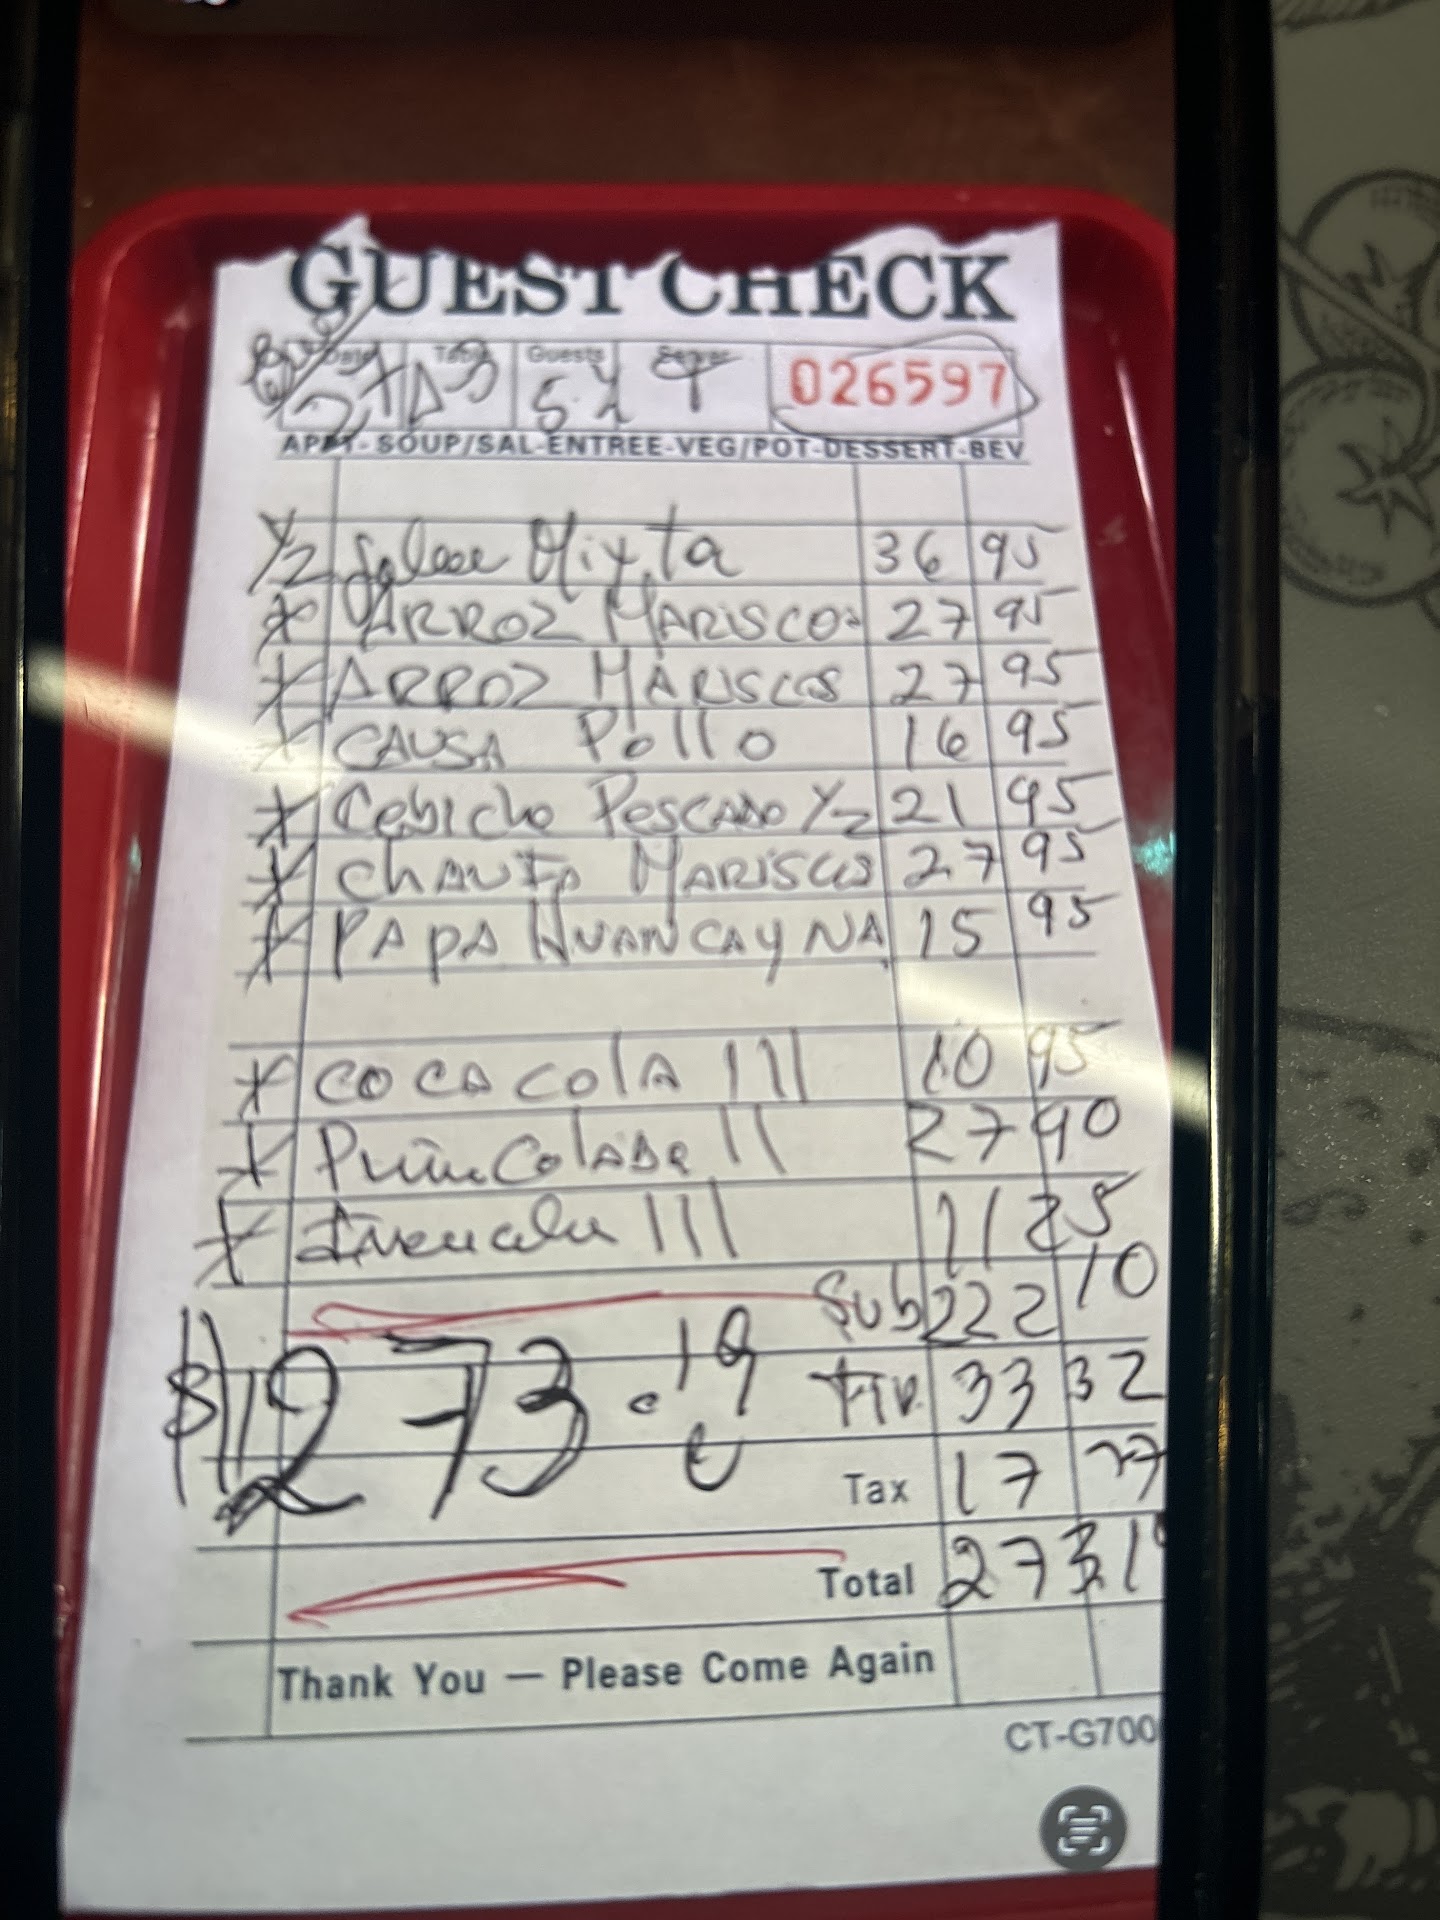 GUEST CHECK
Date Table Guests Server
026597
APPT-SOUP/SAL-ENTREE-VEG/POT-DESSERT-BEV
1/2 Jalea Mixta 36 95
ARROZ MARISCOS 27 95
ARROZ MARISCOS 27 95
CAUSA Pollo 16 95
Cebiche PESCADO 1/2 21 95
CHAUFA MARISCOS 27 95
PAPA HUANCAYNA 15 95
COCA COLA III 10 95
Colada II 27 90
III 11 25
Sub 222 10
$ 273.19
Tip. 33 32
Tax 17 77
Total 273 19
Thank You — Please Come Again
CT-G700